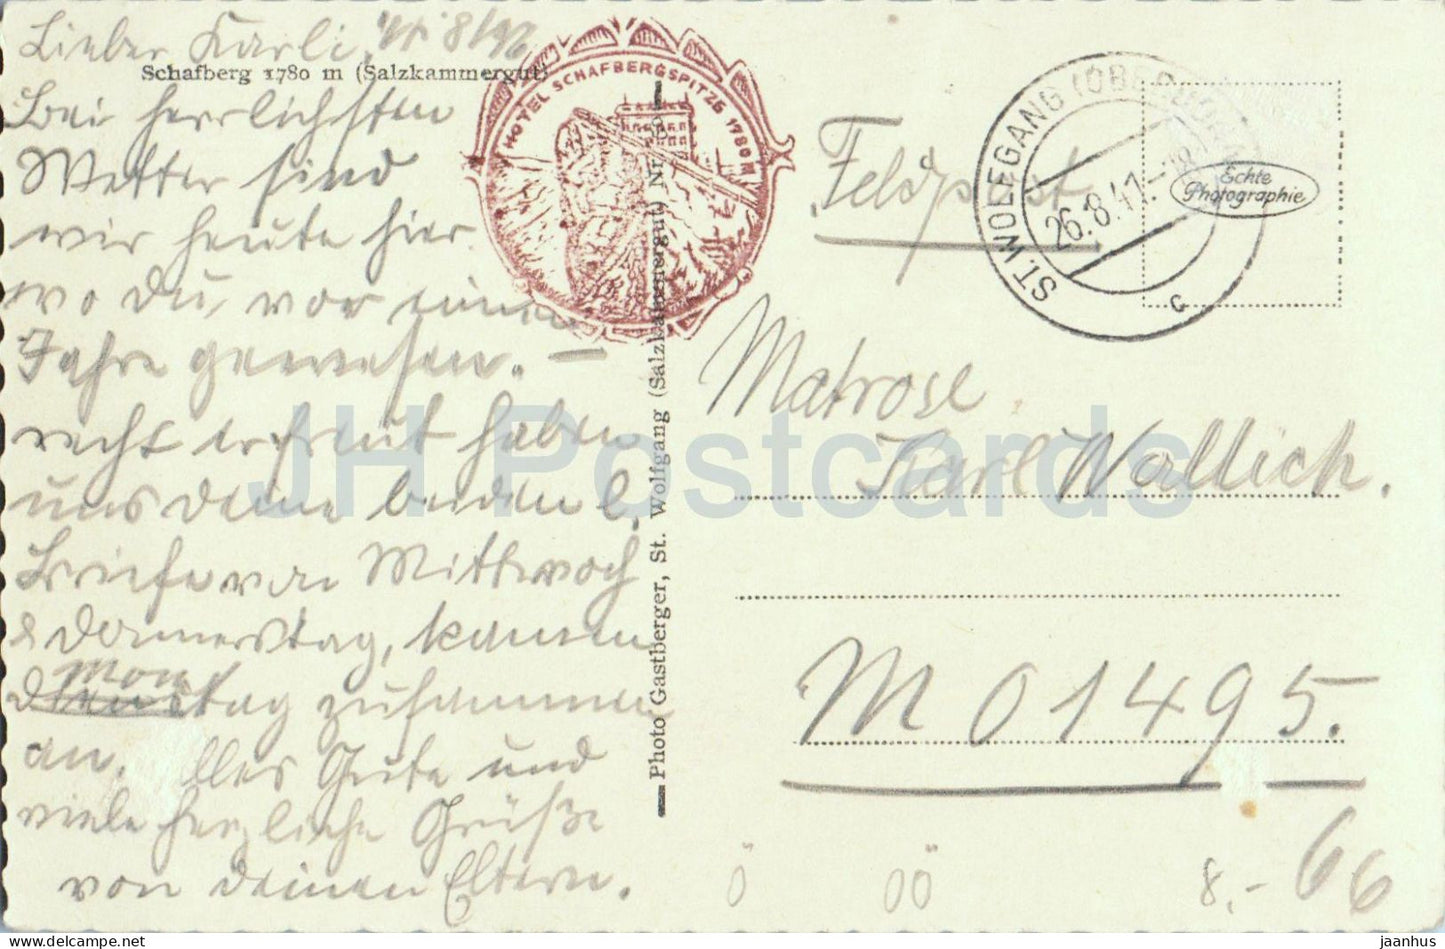 Lieber Karli,
Schafberg 1780 m (Salzkammergut)
Bei herrlichsten
Wetter sind
wir heute hier
wo du, vor einem
Jahre gewesen. —
recht erfreut haben
uns deine beiden l.
Briefe von Mittwoch
& Donnerstag, kamen
Mon
Dienstag zusammen
an. Alles Gute und
viele herzliche Grüße
von deinen Eltern.
HOTEL SCHAFBERGSPITZE 1780m
Photo Gastberger, St. Wolfgang (Salzkammergut) Nr.
Feldpost
ST. WOLFGANG (OBERDONAU)
26.8.41.-18
c
Echte
Photographie
Matrose
Karl Wallich.
M 01495.
Ö ÖÖ 8.- 66
JH Postcards
jaanhus @ www.delcampe.net